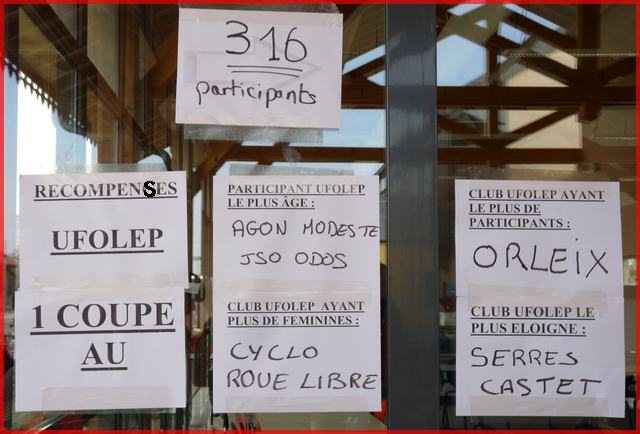 316
participants
RECOMPENSES
UFOLEP
1 COUPE
AU
PARTICIPANT UFOLEP
LE PLUS ÂGE :
AGON MODESTE
JSO ODOS
CLUB UFOLEP AYANT
PLUS DE FEMININES :
CYCLO
ROUE LIBRE
CLUB UFOLEP AYANT
LE PLUS DE
PARTICIPANTS :
ORLEIX
CLUB UFOLEP LE
PLUS ELOIGNE :
SERRES
CASTET